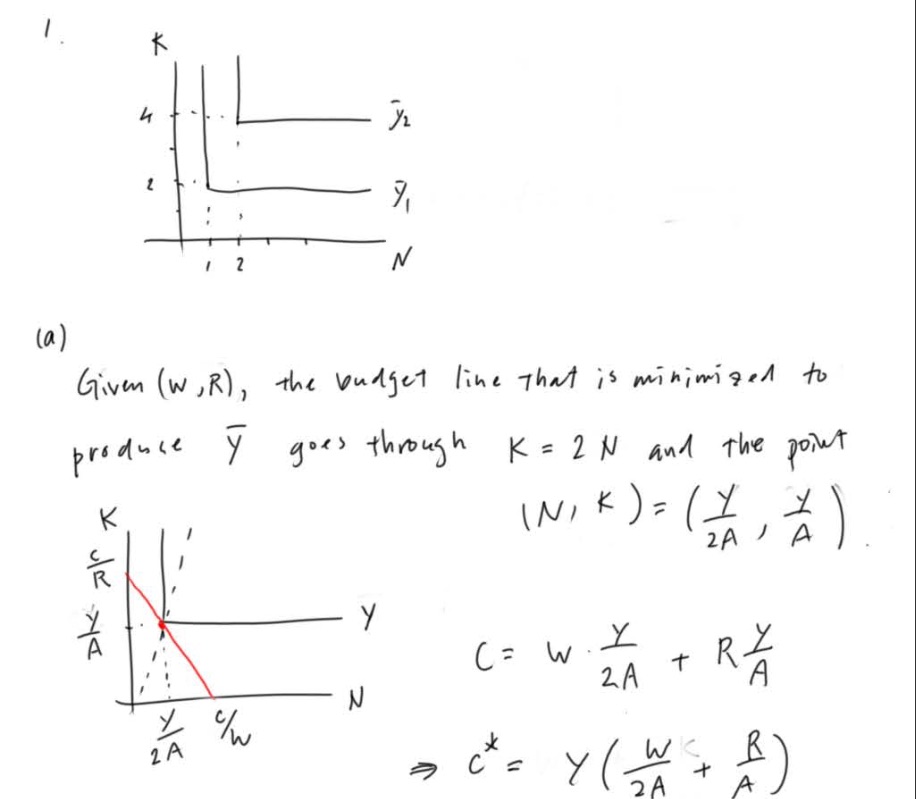 1.
K
4
ȳ₂
2
ȳ₁
1 2
N
(a)
Given (W,R), the budget line that is minimized to
produce Ȳ goes through K = 2N and the point
(N, K) = (Y/2A, Y/A).
K
C/R
Y/A
Y
N
Y/2A
C/W
C = W · Y/2A + R Y/A
⇒ C* = Y(W/2A + R/A)